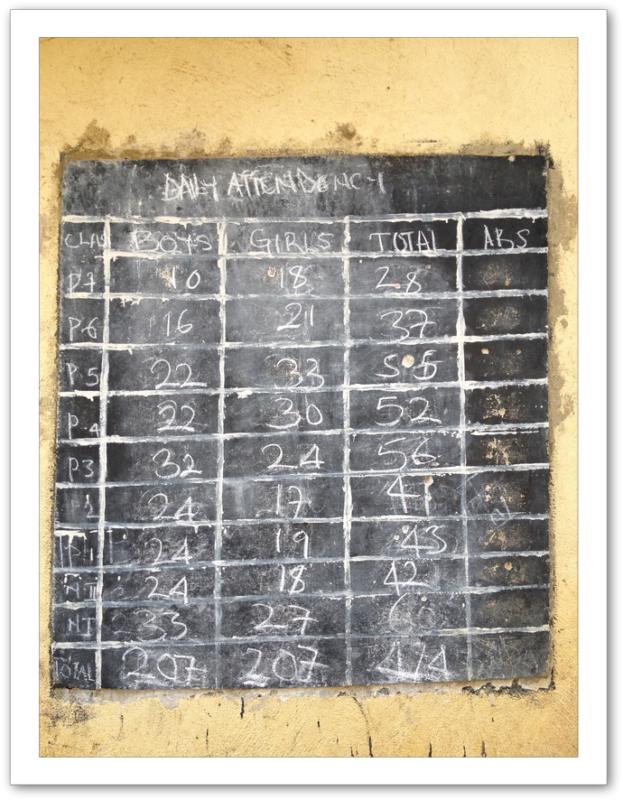 DAILY ATTENDENCY
CLAS BOYS GIRLS TOTAL ABS
P7 10 18 28
P6 16 21 37
P.5 22 33 55
P.4 22 30 52
P3 32 24 56
P2 24 17 41
P1 24 19 43
NII 24 18 42
NI 33 27 60
TOTAL 207 207 414